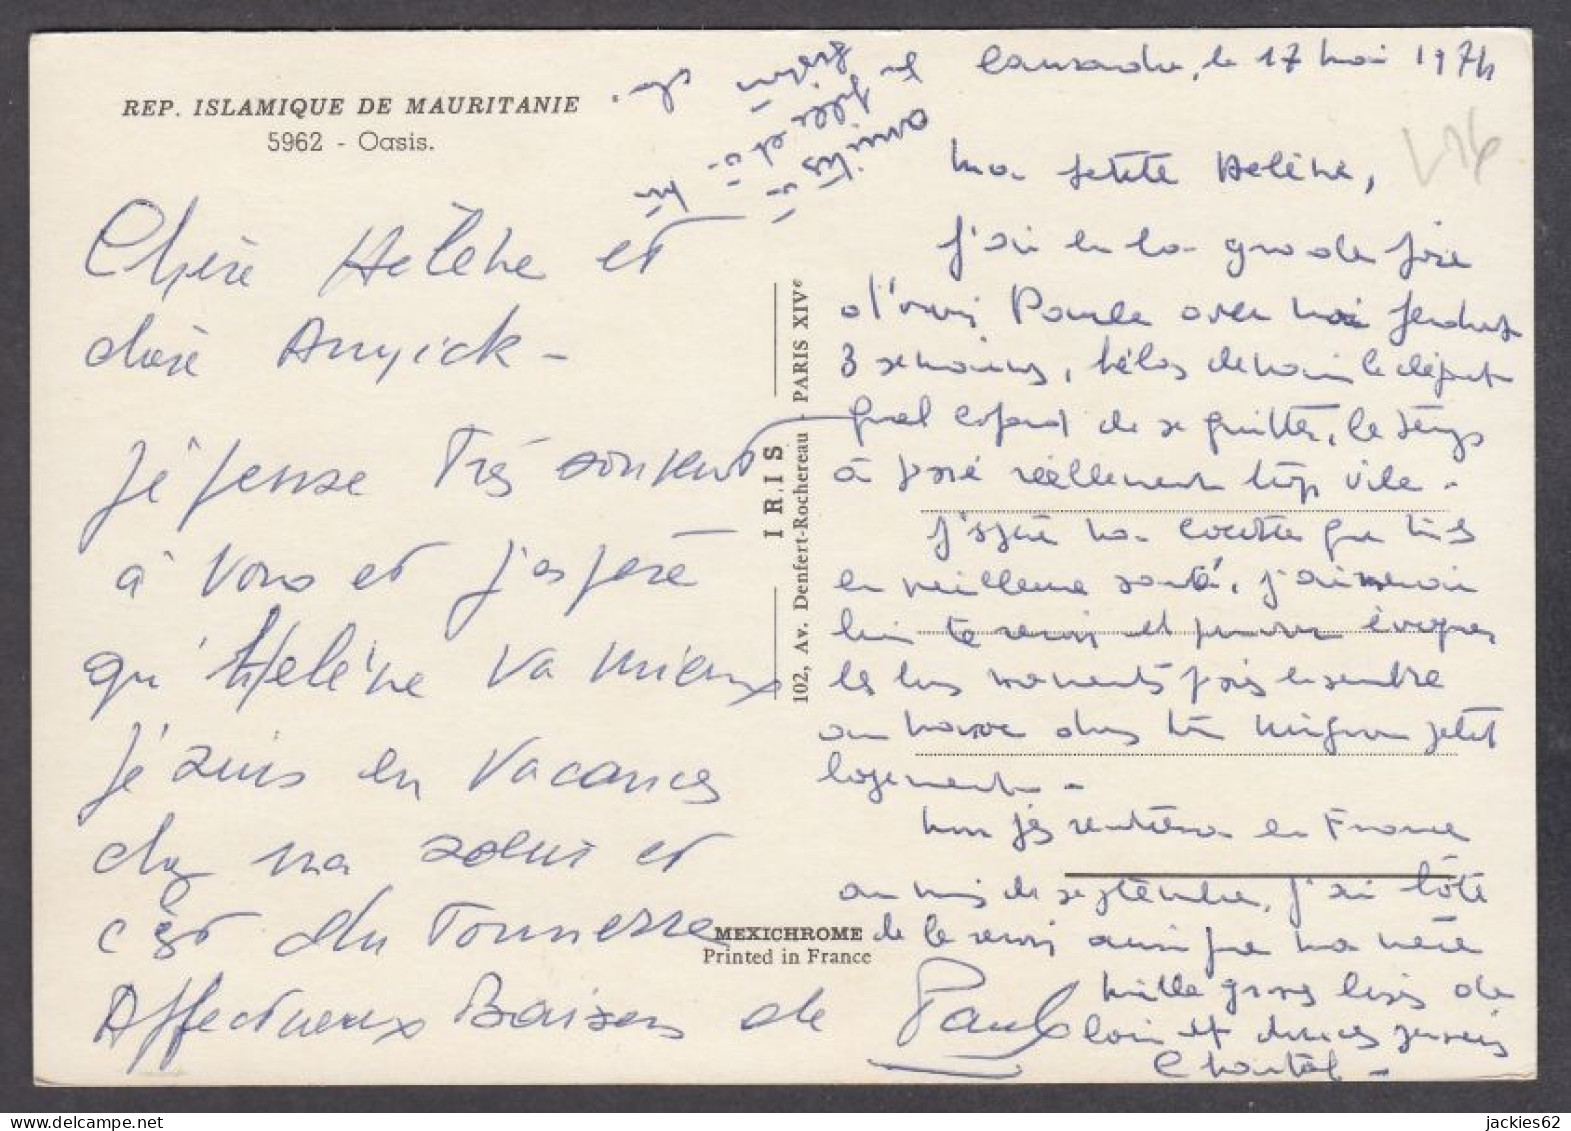 REP. ISLAMIQUE DE MAURITANIE
5962 - Oasis.
Chère Hélène et
chère Annick -
Je pense très souvent
à vous et j'espère
qu'Hélène va mieux
Je suis en vacances
chez ma soeur et
c'est du tonnerre
Affectueux Baisers de Paule
IRIS
102, Av. Denfert-Rochereau - PARIS XIVe
MEXICHROME
Printed in France
Cansado, le 17 mai 1974
Ma petite Hélène,
J'ai eu la grande joie
d'avoir Paule avec moi pendant
3 semaines, hélas demain le départ
quel cafard de se quitter, le temps
a passé réellement trop vite -
J'espère ma cocotte que tu es
en meilleure santé, j'aimerai
bien te revoir et pouvoir évoquer
les bons moments passés ensemble
au dans ton mignon petit
logement -
Nous rentrerons en France
au mois de septembre, j'ai hâte
de te revoir ainsi que ma mère
Mille gros bises de
loin et douces pensées
Chantal -
amitiés
jackies62